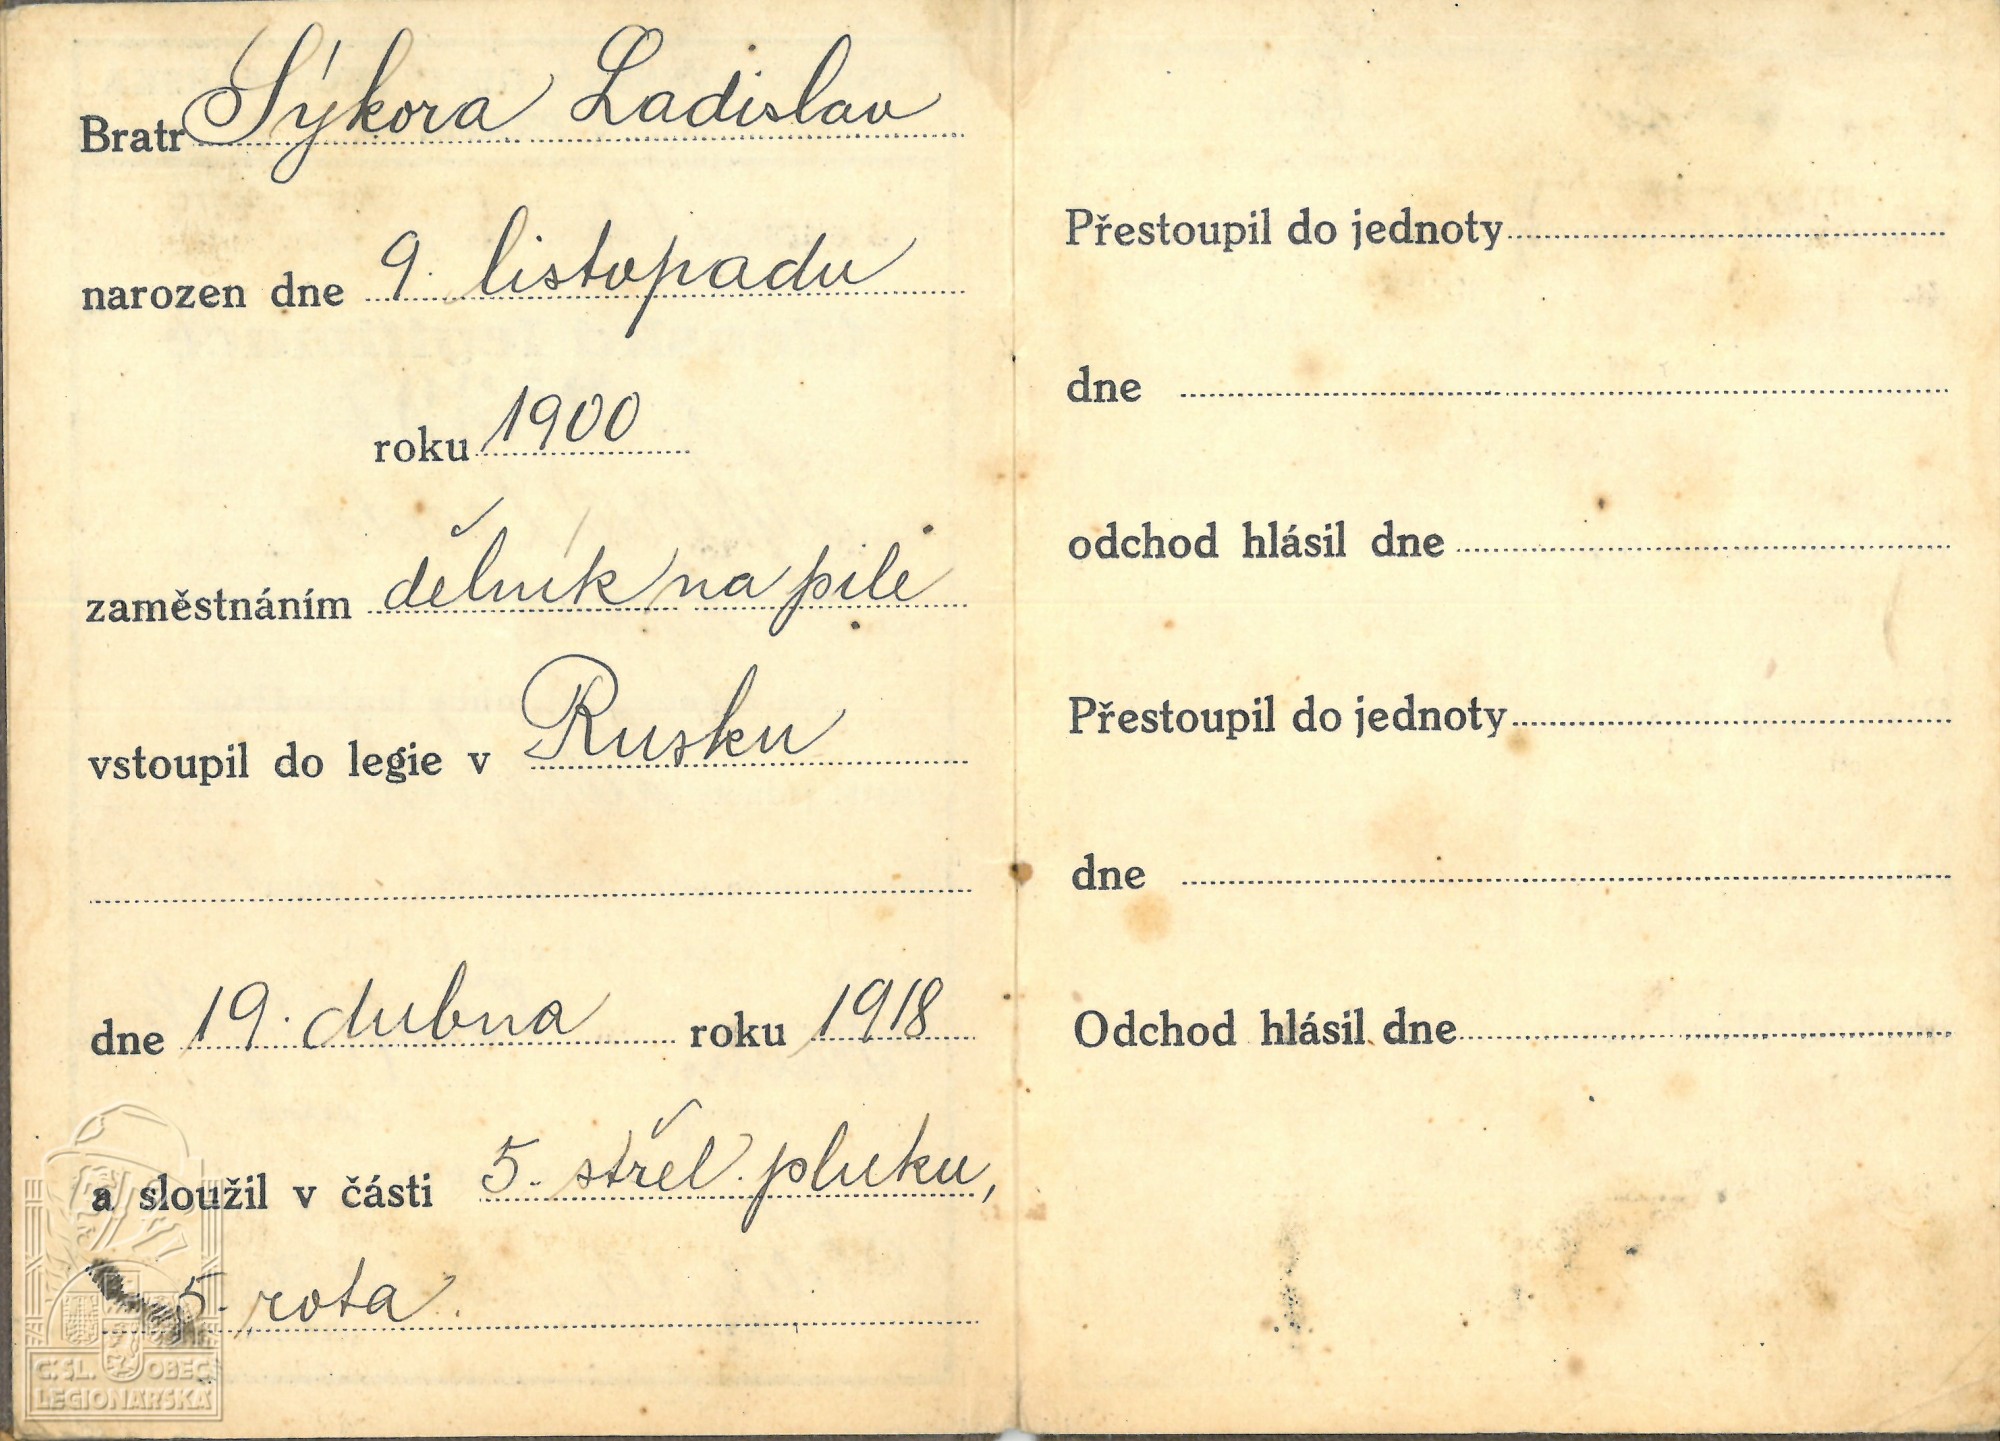 Bratr Sýkora Ladislav
narozen dne 9. listopadu
roku 1900
zaměstnáním dělník na pile
vstoupil do legie v Rusku
dne 19. dubna roku 1918
a sloužil v části 5. střel. pluku,
5. rota.
Č. SL. OBEC
LEGIONÁŘSKÁ
Přestoupil do jednoty
dne
odchod hlásil dne
Přestoupil do jednoty
dne
Odchod hlásil dne